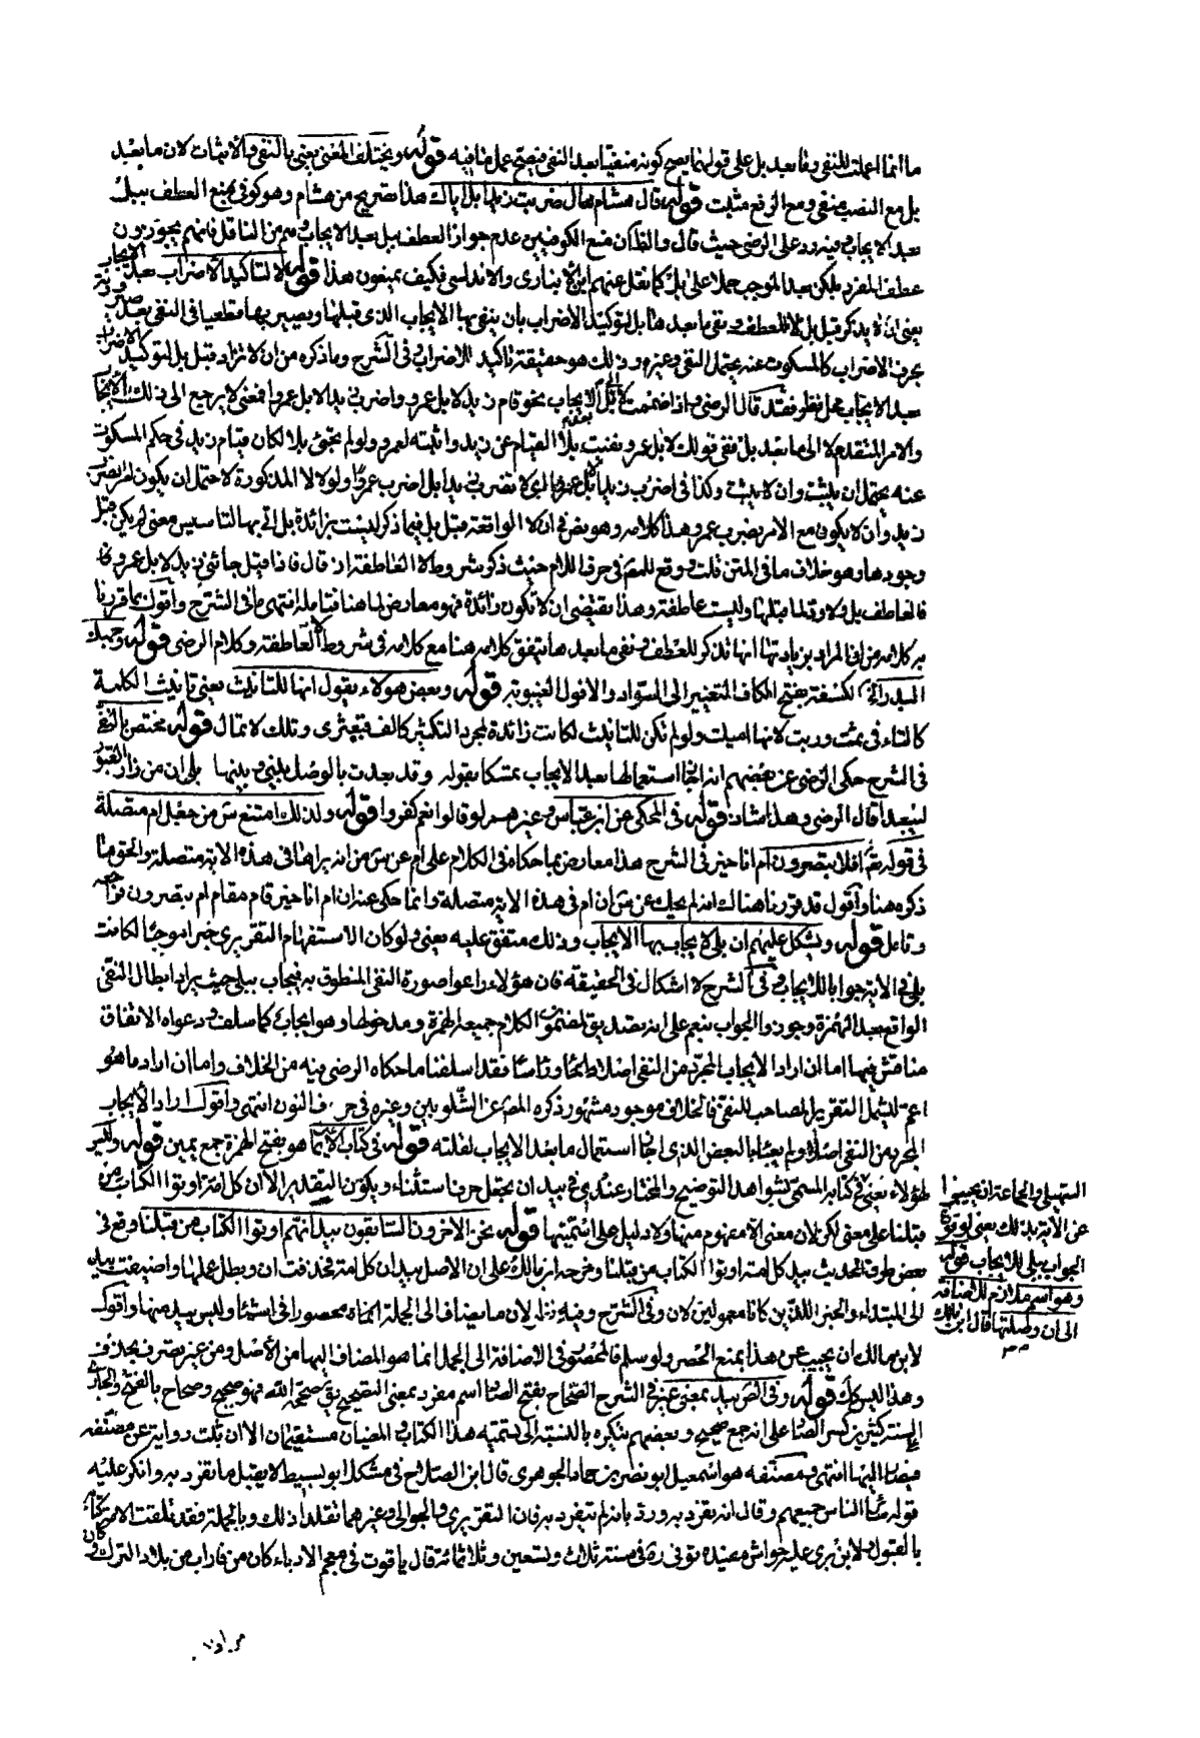 ما انما اعملت للنفي وما بعد بل على قولهما يصح كونه منفيا بعد النفي فيصح عمل ما فيه قوله ويختلف المعنى يعني بالنفي والاثبات لان ما بعد
بل مع النصب منفي ومع الرفع مثبت قوله قال هشام محال ضربت زيدا بل اياك هذا تصريح من هشام وهو كوفي بمنع العطف ببل
بعد الايجاب فيرد على الرضي حيث قال والظ ان منع الكوفيين عدم جواز العطف ببل بعد الايجاب وهم من الناقل فانهم يجوزون
عطف المفرد بلكن بعد الموجب حملا على بل كما نقل عنهم ابن الانباري والاندلسي فكيف يمنعون هذا قوله لا لتاكيد الاضراب بعد الايجاب
يعني ان لا يذكر قبل بل لا للعطف ونفي ما بعدها بل لتوكيد الاضراب بان ينفي بها الايجاب الذي قبلها ويصير بها قطعيا في النفي بعد صيرورته
بحرف الاضراب كالمسكوت عنه يحتمل النفي وغيره وذلك هو حقيقة تاكيد الاضراب في الشرح وما ذكره من ان لا تزاد قبل بل لتوكيد الاضراب
بعد الايجاب محل نظر فقد قال الرضي واذا ضممت لا الى بل بعد الايجاب نحو قام زيد لا بل عمرو واضرب زيدا لا بل عمرا فمعنى لا يرجع الى ذلك الايجاب
والامر المتقدم لا الى ما بعد بل ففي قولك لا بل عمرو نفيت بلا القيام عن زيد واثبته لعمرو ولو لم تجئ بلا لكان قيام زيد في حكم المسكوت
عنه يحتمل ان يثبت وان لا يثبت وكذا في اضرب زيدا لا بل عمرا اي لا تضرب زيدا بل اضرب عمرا ولولا لا المذكورة لاحتمل ان يكون امرا بضرب
زيد وان لا يكون مع الامر بضرب عمرو هذا كلامه وهو نص في ان لا الواقعة قبل بل فيما ذكر ليست بزائدة بل اتي بها لتاسيس معنى لم يكن قبل
وجودها وهو خلاف ما في المتن قلت ووقع للمص في حرف اللام حيث ذكر شروط لا العاطفة ان قال فاذا قيل جاءني زيد لا بل عمرو
فالعاطف بل ولا رد لما قبلها وليست عاطفة وهذا يقتضي ان لا تكون زائدة فهو معارض لما هنا فتامله انتهى ما في الشرح واقول بما قررنا
به كلامه من ان المراد بزيادتها انها لا تذكر للعطف ونفي ما بعدها يتفق كلامه هنا مع كلامه في شروط لا العاطفة وكلام الرضي قوله وجهك
البدر الخ لكسفة بفتح الكاف التغيير الى السواد والافول الغيبوبة قوله وبعض هولاء يقول انها للتانيث يعني تانيث الكلمة
كالتاء في ثمت وربت لانها اميلت ولو لم تكن للتانيث لكانت زائدة لمجرد التكثير كالف قبعثرى وتلك لا تمال قوله مختص بالنفي
في الشرح حكى الرضي عن بعضهم انه اجاز استعمالها بعد الايجاب تمسكا بقوله وقد بعدت بالوصل بيني وبينها بلى ان من زار القبور
ليبعدا قال الرضي وهذا شاذ قوله في المحكي عن ابن عباس وغيره لو قالوا نعم كفروا قوله ولذلك امتنع س من جعل ام متصلة
في قوله تعالى افلا تبصرون ام انا خير في الشرح هذا معارض بما حكاه في الكلام على ام عن س من انه يراها في هذه الاية متصلة والحق ما
ذكره هنا واقول قد قررنا هناك انه لم يحك عن س ان ام في هذه الاية متصلة وانما حكى عنه ان ام انا خير قام مقام ام تبصرون فراجعه
وتامل قوله ويشكل عليهم ان بلى لا يجاب بها الايجاب وذلك متفق عليه يعني ولو كان الاستفهام التقريري خبرا موجبا لكانت
بلى في الاية جوابا للايجاب وفي الشرح لا اشكال في الحقيقة فان هؤلاء راعوا صورة النفي المنطوق به فيجاب ببلى حيث يراد ابطال النفي
الواقع بعد الهمزة وجوزوا الجواب بنعم على انه تصديق لمضمون الكلام جميعه الهمزة ومدخولها وهو ايجاب كما سلف ودعواه الاتفاق
مناقش فيها اما ان اراد الايجاب المجرد من النفي اصلا وراسا فقد اسلفنا ما حكاه الرضي فيه من الخلاف واما ان اراد ما هو
اعم ليشمل التقرير المصاحب للنفي فالخلاف موجود مشهور ذكره المص عن الشلوبين وغيره في حرف النون انتهى واقول اراد الايجاب
المجرد من النفي اصلا ولم يعبا بالبعض الذي اجاز استعمال ما بعد الايجاب لقلته قوله في كتاب الايمان هو بفتح الهمزة جمع يمين قوله وليس
لهؤلاء يعني في كتابه المسمى بشواهد التوضيح والمختار عندي في بيد ان يجعل حرف استثناء ويكون التقدير الا ان كل امة اوتوا الكتاب من
قبلنا على معنى لكن لان معنى الا مفهوم منها ولا دليل على اسميتها قوله نحن الاخرون السابقون بيد انهم اوتوا الكتاب من قبلنا وقع في
بعض طرف الحديث بيد كل امة اوتوا الكتاب من قبلنا وخرجه ابن مالك على ان الاصل بيد ان كل امة فحذفت ان وبطل عملها واضيفت بيد
الى المبتداء والخبر اللذين كانا معمولين لان وفي الشرح وفيه نظر لان ما يضاف الى الجملة اسماء محصورة في اشياء وليس بيد منها واقول
لابن مالك ان يجيب عن هذا بمنع الحصر ولو سلم فالمحصور في الاضافة الى الجمل انما هو المضاف اليها من الاصل ومن غير تصرف بحذف
وهذا ليس كذلك قوله وفي الصح بيد بمعنى غير في الشرح الصحاح بفتح الصاد اسم مفرد بمعنى الصحيح يق صححه الله فهو صحيح وصحاح بالفتح والجاري
على السنة كثيرين كسر الصاد على انه جمع صحيح وبعضهم ينكره بالنسبة الى تسمية هذا الكتاب والمعنيان مستقيمان الا ان ثبت رواية عن مصنفه
فيصار اليها انتهى ومصنفه هو اسمعيل ابو نصر بن حماد الجوهري قال ابن الصلاح في مشكل الوسيط لا يقبل ما تفرد به وانكر عليه
قوله سائر الناس جميعهم وقال انه تفرد به ورد بانه لم يتفرد به فان التبريزي والجواليقي وغيرهما نقلا ذلك وبالجملة فقد تلقت الامة كتابه
بالقبول ولابن بري عليه حواش مفيدة توفي في سنة ثلاث وتسعين وثلاثمائة قال ياقوت في معجم الادباء كان من فاراب من بلاد الترك وكان
السهيلي والجماعة ان يجيبوا
عن الاية بذلك يعني لوقوع
الجواب ببلى للايجاب قوله
وهو اسم ملازم للاضافة
الى ان وصلتها قال ابن مالك